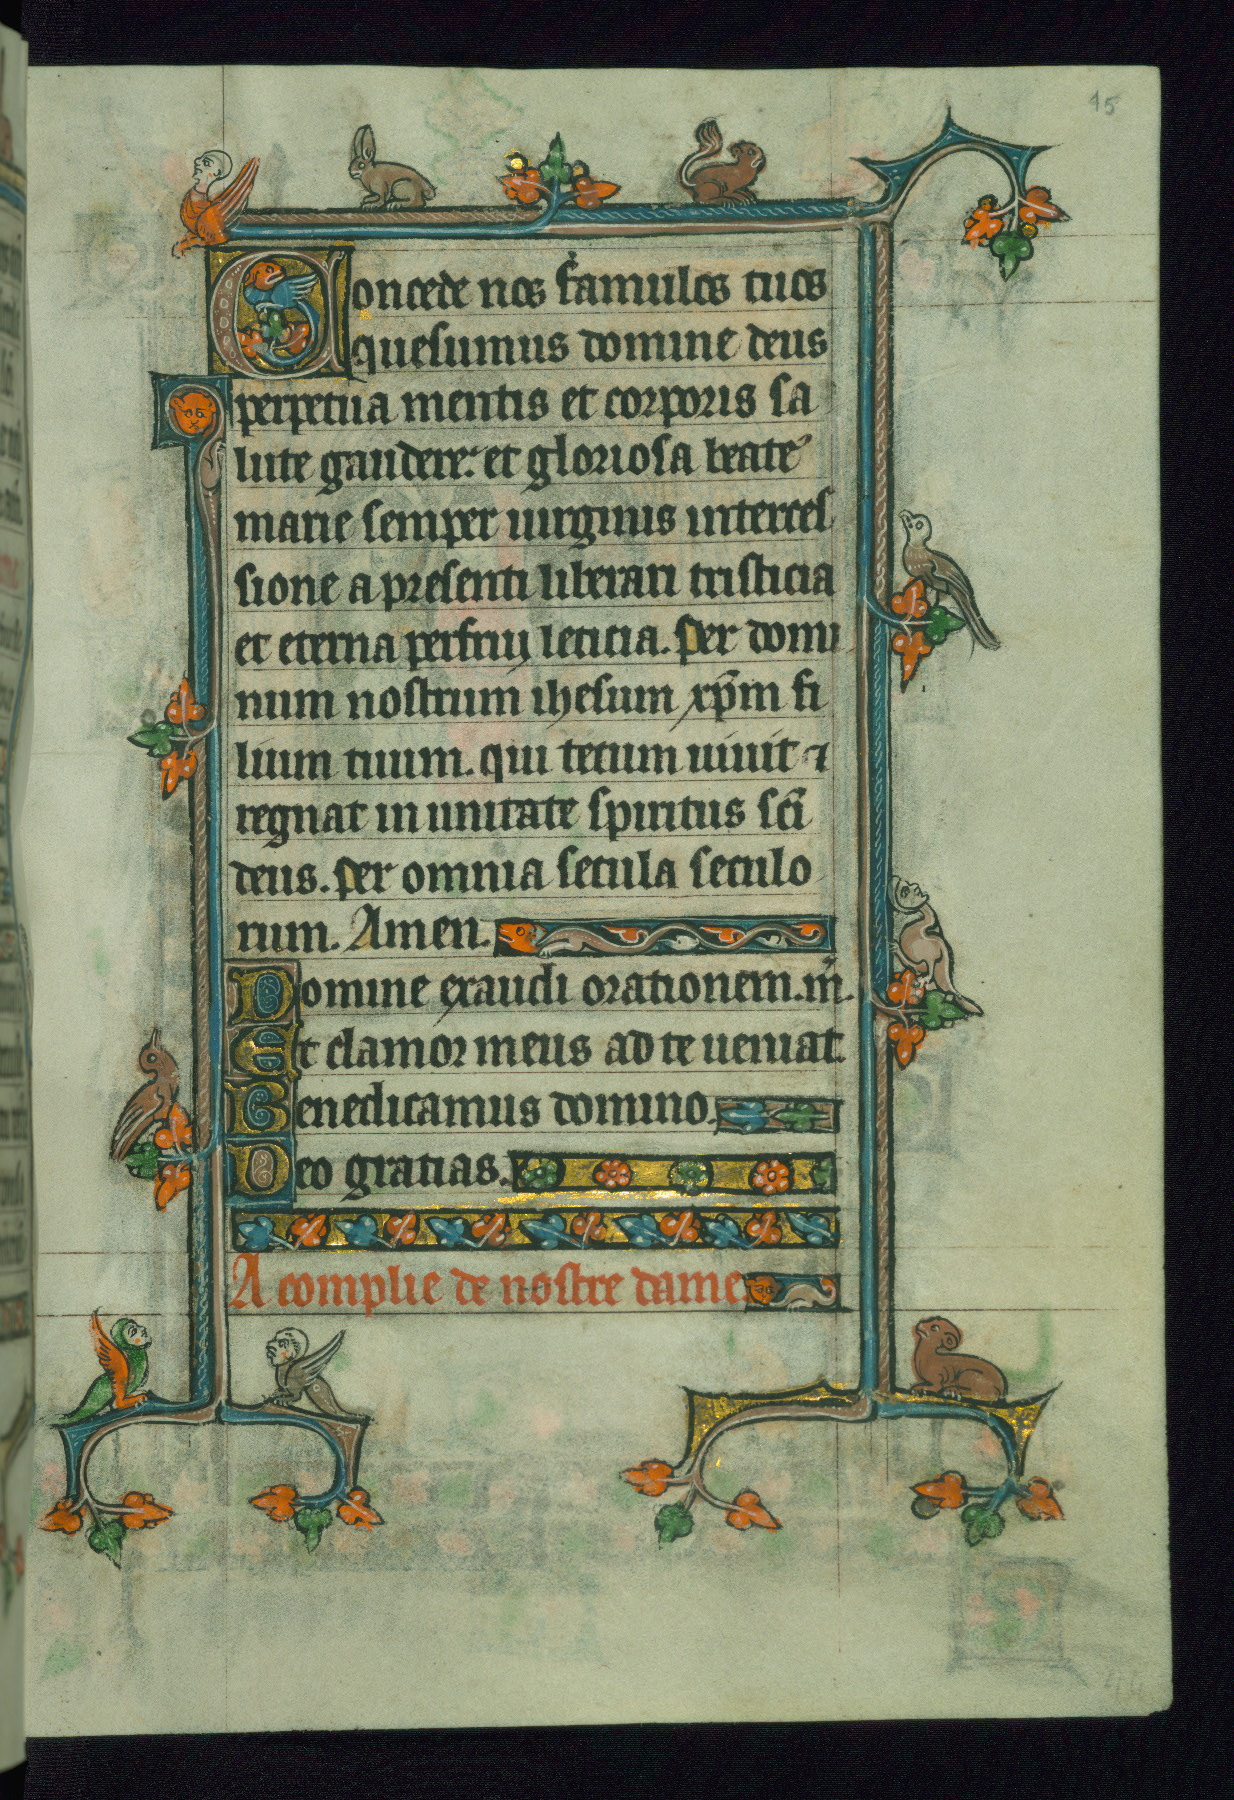 15
Concede nos famulos tuos
quesumus domine deus
perpetua mentis et corporis sa
lute gaudere. et gloriosa beate
marie semper uirginis interces
sione a presenti liberari tristicia
et eterna perfrui leticia. Per domi
num nostrum ihesum xp̄m fi
lium tuum. qui tecum uiuit ⁊
regnat in unitate spiritus sc̄i
deus. Per omnia secula seculo
rum. Amen.
Domine exaudi orationem. m̄.
Et clamor meus ad te ueniat.
Benedicamus domino.
Deo gratias.
A complie de nostre dame.